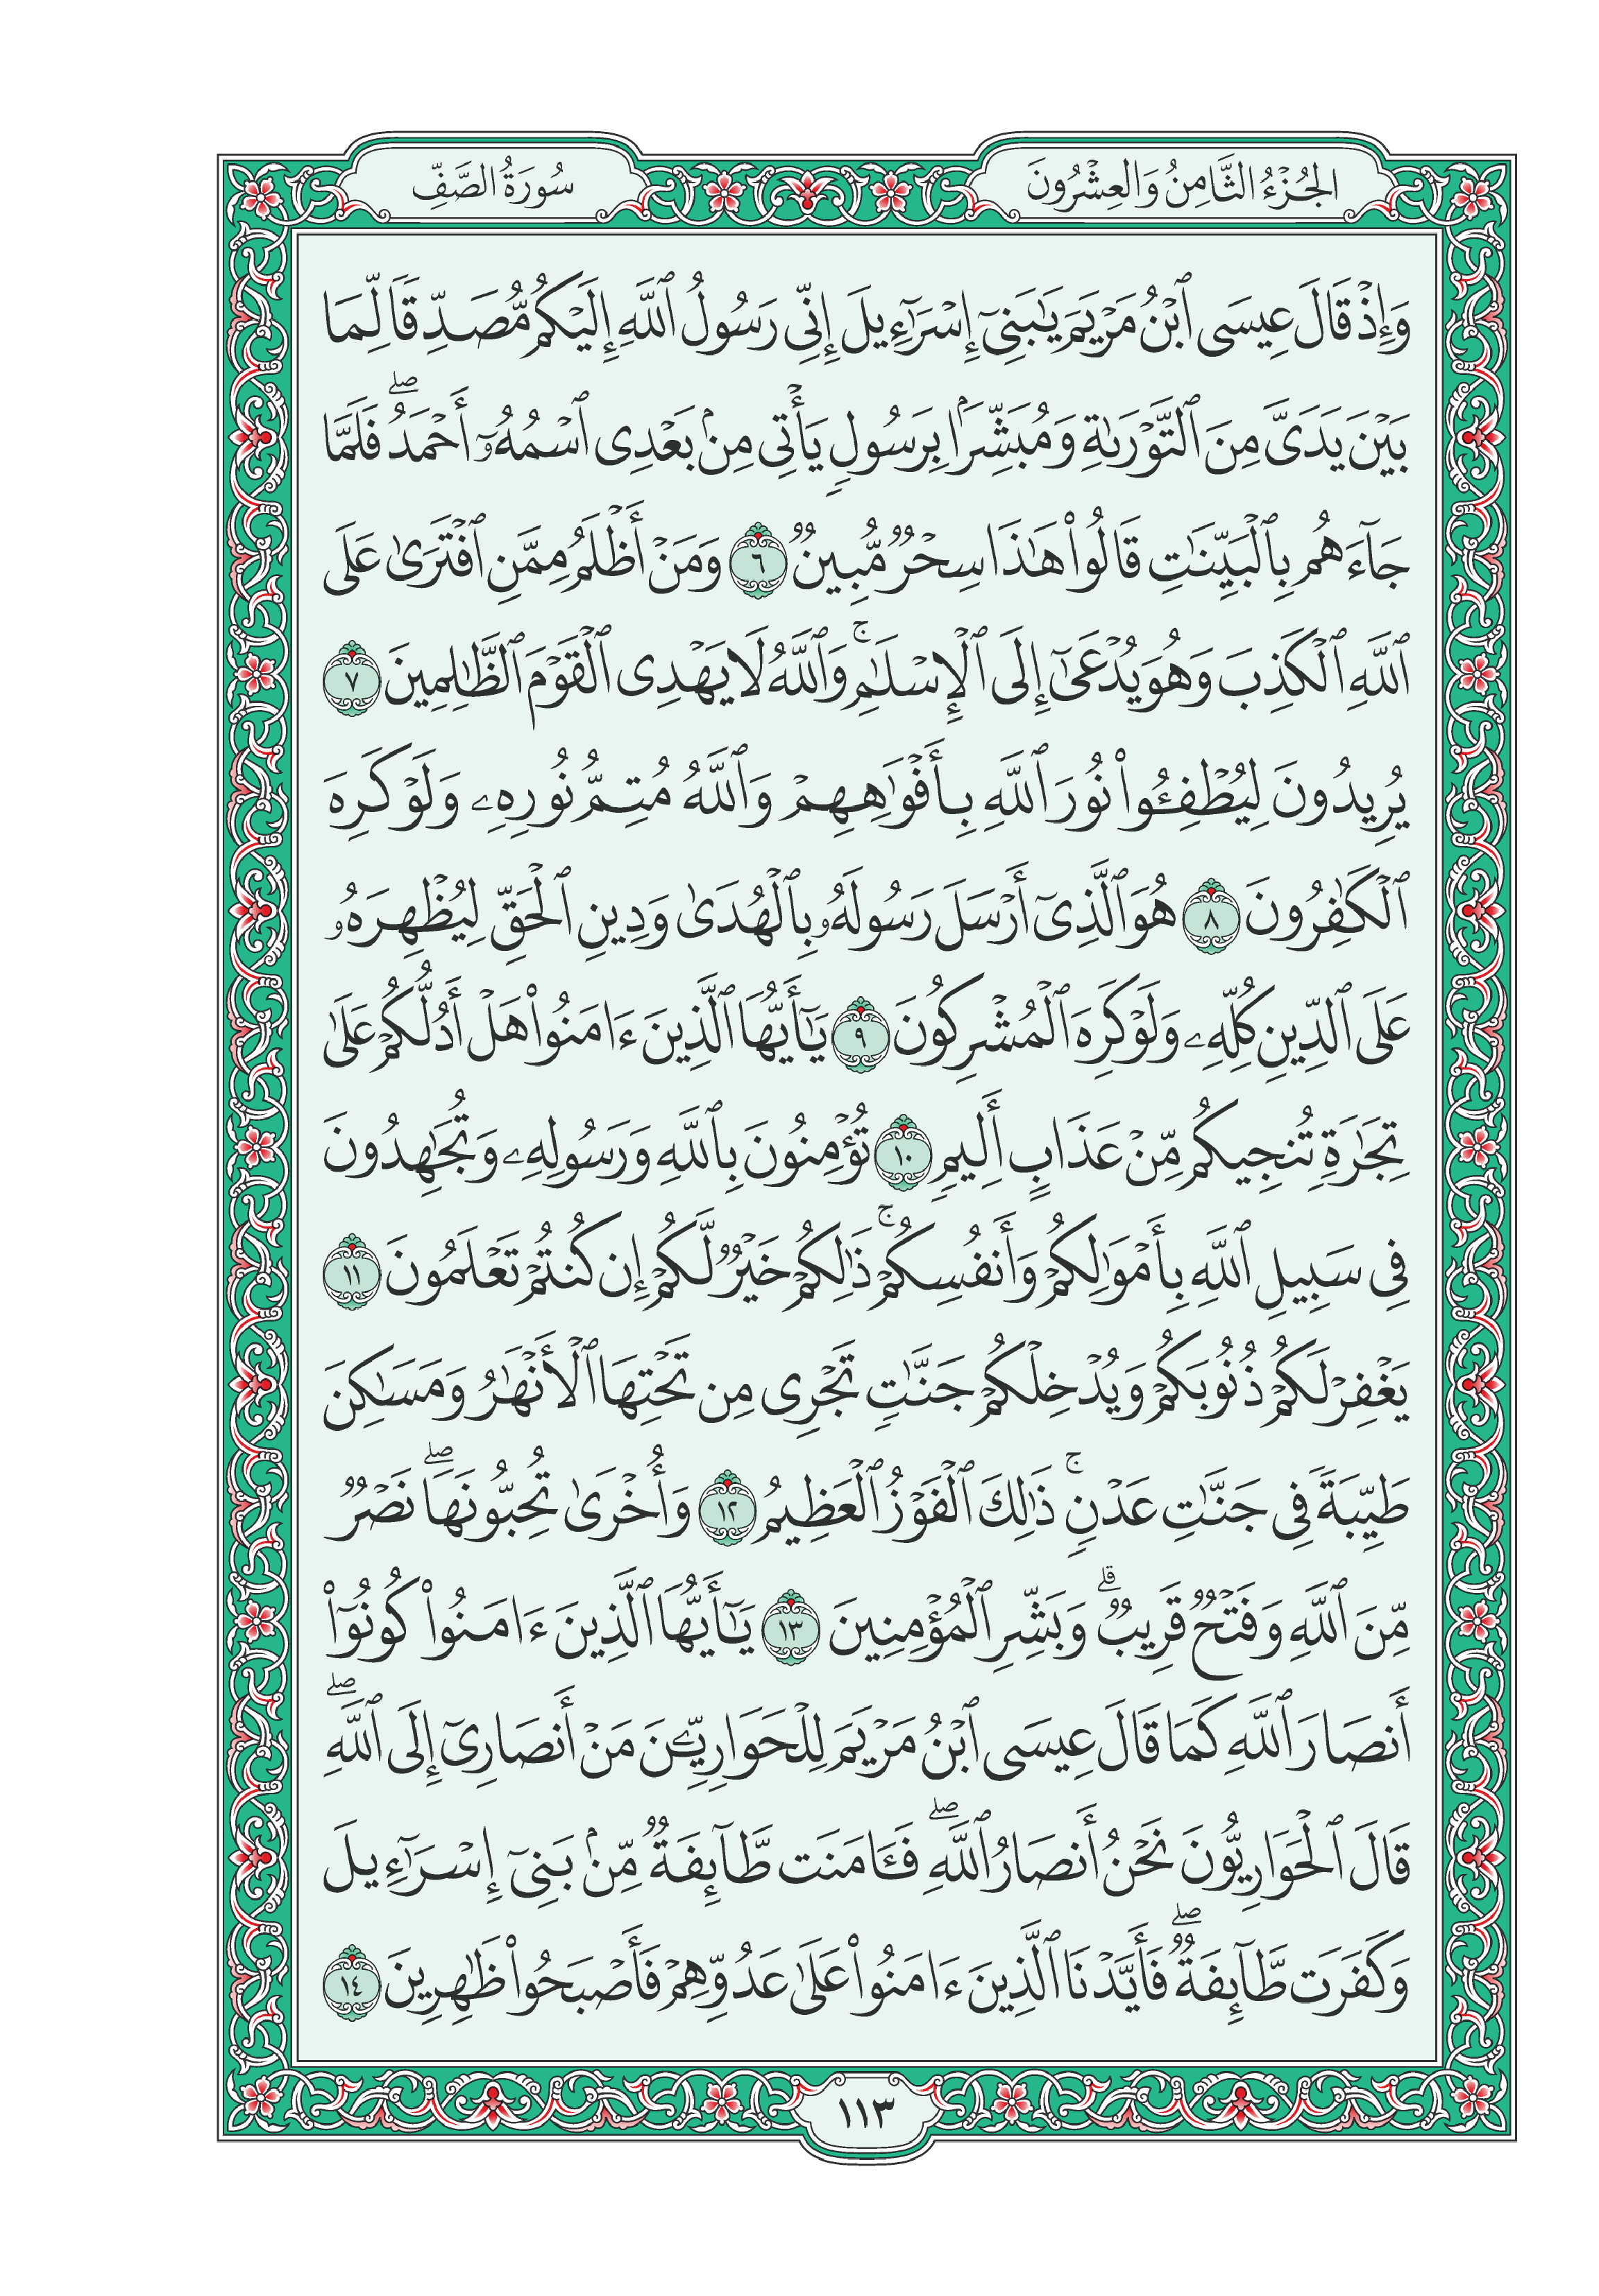 الجُزْءُ الثَّامِنُ وَالعِشْرُونَ
سُورَةُ الصَّفِّ
وَإِذْ قَالَ عِيسَى ٱبْنُ مَرْيَمَ يَٰبَنِىٓ إِسْرَٰٓءِيلَ إِنِّى رَسُولُ ٱللَّهِ إِلَيْكُم مُّصَدِّقًا لِّمَا
بَيْنَ يَدَىَّ مِنَ ٱلتَّوْرَىٰةِ وَمُبَشِّرًۢا بِرَسُولٍ يَأْتِى مِنۢ بَعْدِى ٱسْمُهُۥٓ أَحْمَدُ ۖ فَلَمَّا
جَآءَهُم بِٱلْبَيِّنَٰتِ قَالُوا۟ هَٰذَا سِحْرٌ مُّبِينٌ ٦ وَمَنْ أَظْلَمُ مِمَّنِ ٱفْتَرَىٰ عَلَى
ٱللَّهِ ٱلْكَذِبَ وَهُوَ يُدْعَىٰٓ إِلَى ٱلْإِسْلَٰمِ ۚ وَٱللَّهُ لَا يَهْدِى ٱلْقَوْمَ ٱلظَّٰلِمِينَ ٧
يُرِيدُونَ لِيُطْفِـُٔوا۟ نُورَ ٱللَّهِ بِأَفْوَٰهِهِمْ وَٱللَّهُ مُتِمُّ نُورِهِۦ وَلَوْ كَرِهَ
ٱلْكَٰفِرُونَ ٨ هُوَ ٱلَّذِىٓ أَرْسَلَ رَسُولَهُۥ بِٱلْهُدَىٰ وَدِينِ ٱلْحَقِّ لِيُظْهِرَهُۥ
عَلَى ٱلدِّينِ كُلِّهِۦ وَلَوْ كَرِهَ ٱلْمُشْرِكُونَ ٩ يَٰٓأَيُّهَا ٱلَّذِينَ ءَامَنُوا۟ هَلْ أَدُلُّكُمْ عَلَىٰ
تِجَٰرَةٍ تُنجِيكُم مِّنْ عَذَابٍ أَلِيمٍ ١٠ تُؤْمِنُونَ بِٱللَّهِ وَرَسُولِهِۦ وَتُجَٰهِدُونَ
فِى سَبِيلِ ٱللَّهِ بِأَمْوَٰلِكُمْ وَأَنفُسِكُمْ ۚ ذَٰلِكُمْ خَيْرٌ لَّكُمْ إِن كُنتُمْ تَعْلَمُونَ ١١
يَغْفِرْ لَكُمْ ذُنُوبَكُمْ وَيُدْخِلْكُمْ جَنَّٰتٍ تَجْرِى مِن تَحْتِهَا ٱلْأَنْهَٰرُ وَمَسَٰكِنَ
طَيِّبَةً فِى جَنَّٰتِ عَدْنٍ ۚ ذَٰلِكَ ٱلْفَوْزُ ٱلْعَظِيمُ ١٢ وَأُخْرَىٰ تُحِبُّونَهَا ۖ نَصْرٌ
مِّنَ ٱللَّهِ وَفَتْحٌ قَرِيبٌ ۗ وَبَشِّرِ ٱلْمُؤْمِنِينَ ١٣ يَٰٓأَيُّهَا ٱلَّذِينَ ءَامَنُوا۟ كُونُوٓا۟
أَنصَارَ ٱللَّهِ كَمَا قَالَ عِيسَى ٱبْنُ مَرْيَمَ لِلْحَوَارِيِّـۧنَ مَنْ أَنصَارِىٓ إِلَى ٱللَّهِ ۖ
قَالَ ٱلْحَوَارِيُّونَ نَحْنُ أَنصَارُ ٱللَّهِ ۖ فَـَٔامَنَت طَّآئِفَةٌ مِّنۢ بَنِىٓ إِسْرَٰٓءِيلَ
وَكَفَرَت طَّآئِفَةٌ ۖ فَأَيَّدْنَا ٱلَّذِينَ ءَامَنُوا۟ عَلَىٰ عَدُوِّهِمْ فَأَصْبَحُوا۟ ظَٰهِرِينَ ١٤
١١٣